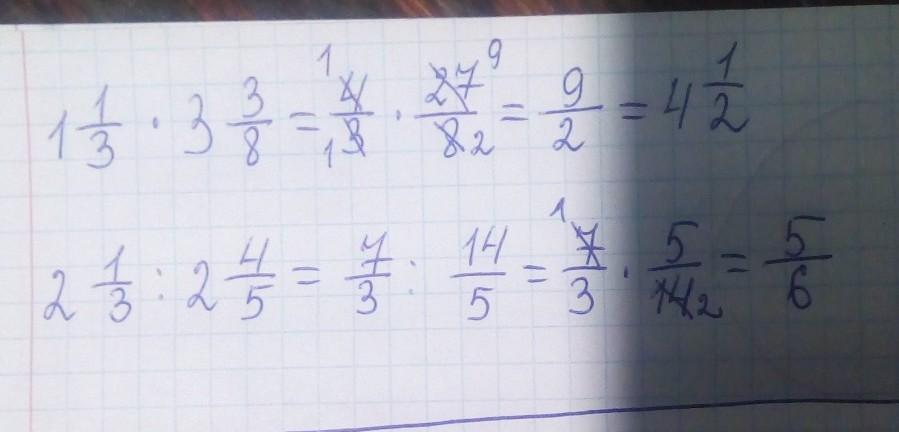 1 1/3 · 3 3/8 = 1 4/3 1 · 27/8 9 2 = 9/2 = 4 1/2
2 1/3 : 2 4/5 = 7/3 : 14/5 = 1 7/3 · 5/14 2 = 5/6